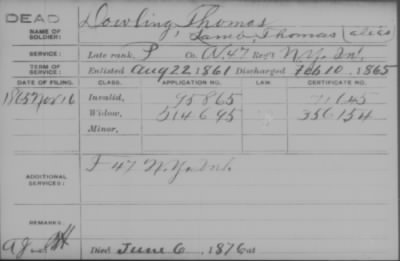 DEAD
NAME OF SOLDIER: Dowling Thomas,
Lamb Thomas (alias)
SERVICE: Late rank, P Co. A, 47 Reg't N.Y. Inf.
TERM OF SERVICE: Enlisted Aug 22, 1861 Discharged Feb 10, 1865
DATE OF FILING. CLASS. APPLICATION NO. LAW. CERTIFICATE NO.
1865 Nov 16 Invalid, 95865 71645
Widow, 514695 356154
Minor,
ADDITIONAL SERVICES: F 47 N.Y. Inf.
REMARKS:
Died June 6, 1876 at